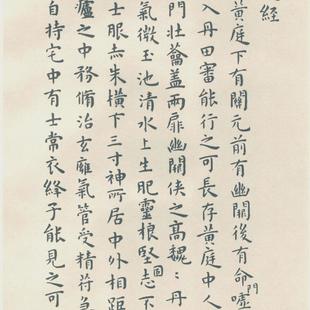 經
黃庭下有關元前有幽闕後有命門嘘
入丹田審能行之可長存黃庭中人
門壯蘥蓋兩扉幽闕俠之高魏：丹
氣微玉池清水上生肥靈根堅固志不
士服赤朱橫下三寸神所居中外相距
瀘之中務脩治玄癰氣管受精符急
自持宅中有士常衣絳子能見之可